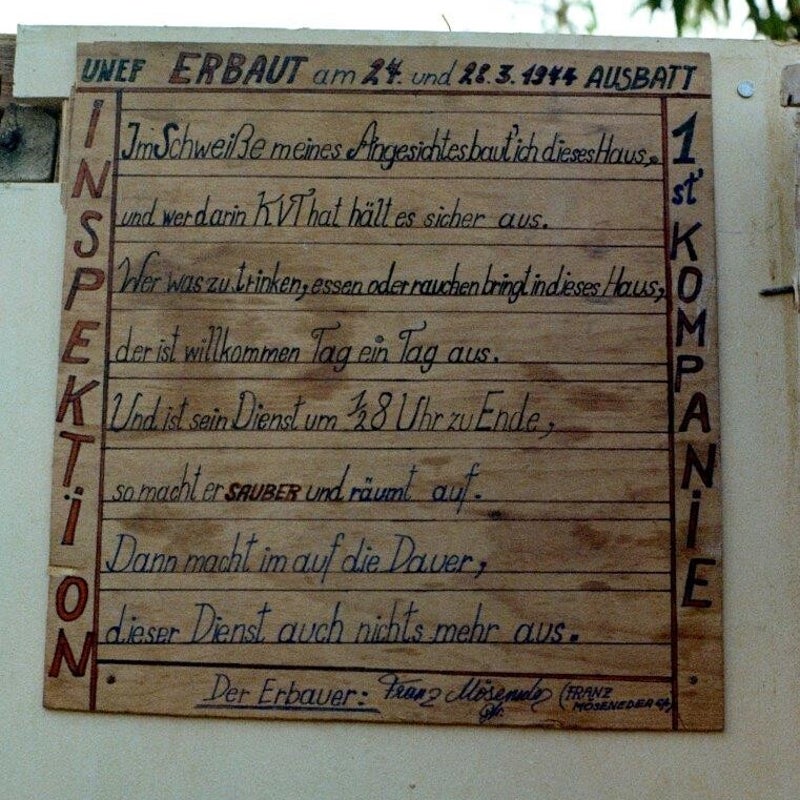 UNEF ERBAUT am 27. und 28.3.1974 AUSBATT
INSPEKTION
Im Schweiße meines Angesichtes baut' ich dieses Haus,
und wer darin KVT hat hält es sicher aus.
Wer was zu trinken, essen oder rauchen bringt in dieses Haus,
der ist willkommen Tag ein Tag aus.
Und ist sein Dienst um ½8 Uhr zu Ende,
so macht er SAUBER und räumt auf.
Dann macht im auf die Dauer,
dieser Dienst auch nichts mehr aus.
1st' KOMPANIE
Der Erbauer: Franz Möseneder Gfr. (FRANZ
MÖSENEDER Gfr)